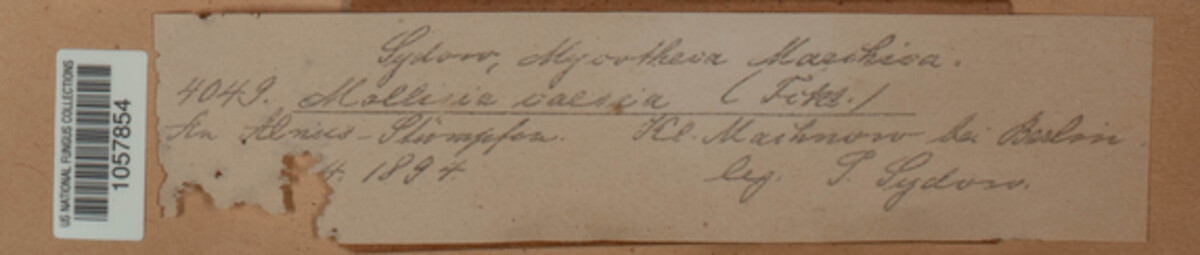 US NATIONAL FUNGUS COLLECTIONS
1057854
Sydow, Mycotheca Marchica.
4049. Mollisia caesia (Fckl.)
An Alnus-Stümpfen. Kl. Machnow bei Berlin.
4. 1894. leg. P. Sydow.